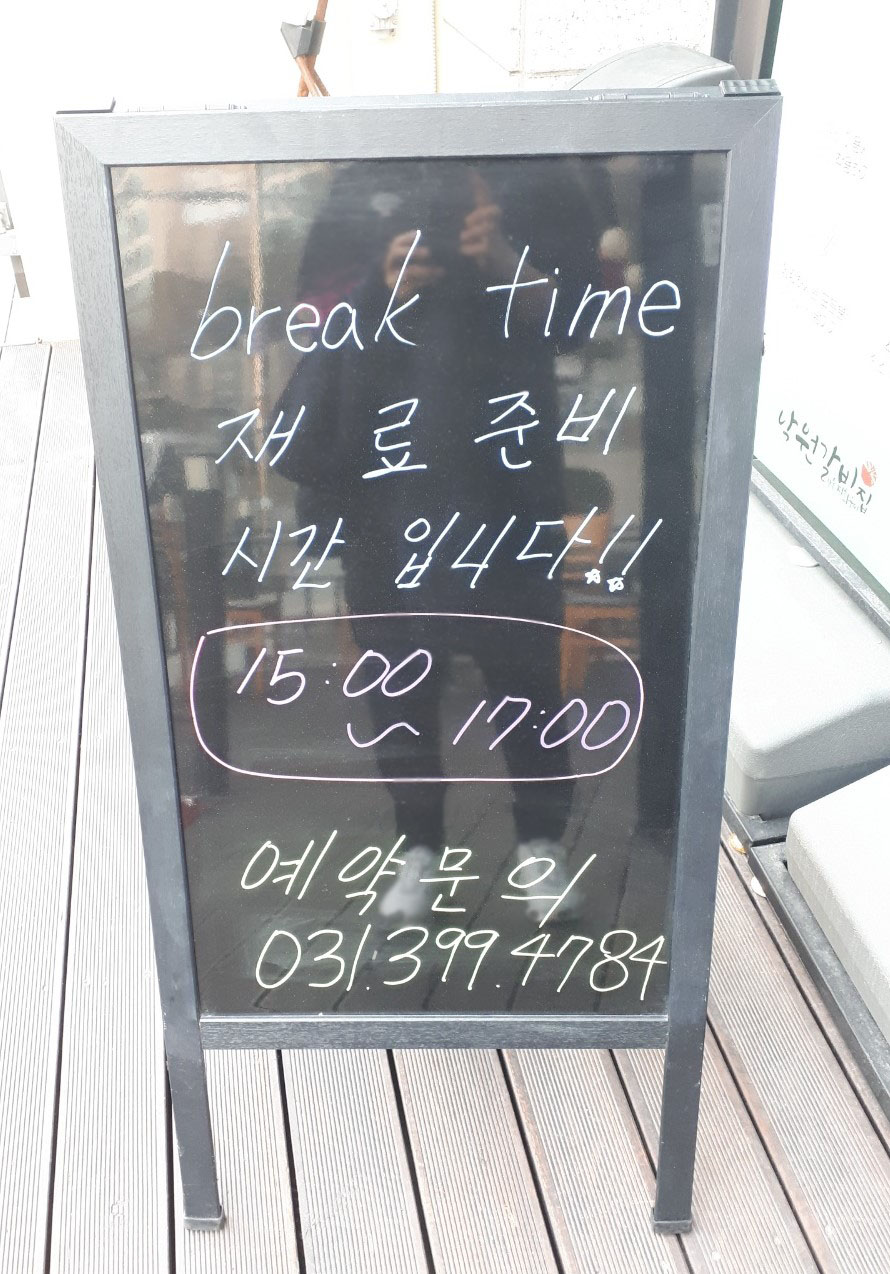 break time
재료준비
시간 입니다!!
15:00
~ 17:00
예약문의
031.399.4784
낙원갈비집